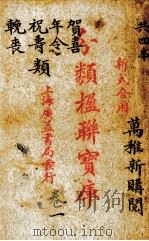 共四本
萬新購閱
新式合用
分類楹聯寶庫
上海廣益書局發行
卷一
賀喜
年令
祝壽類
輓喪